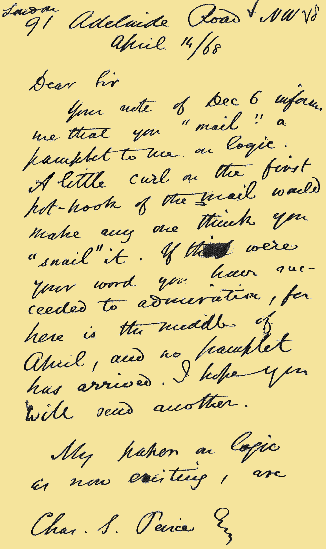 London
91 Adelaide Road NW
April 14/68
Dear Sir
Your note of Dec 6 inform
me that you "mail" a
pamphlet to me on logic.
A little curl on the first
pot-hook of the mail would
make any one think you
"snail" it. If that were
your word you have suc-
ceeded to admiration, for
here is the middle of
April, and no pamphlet
has arrived. I hope you
will send another.
My papers on logic
as now existing, are
Chas. S. Peirce Esq